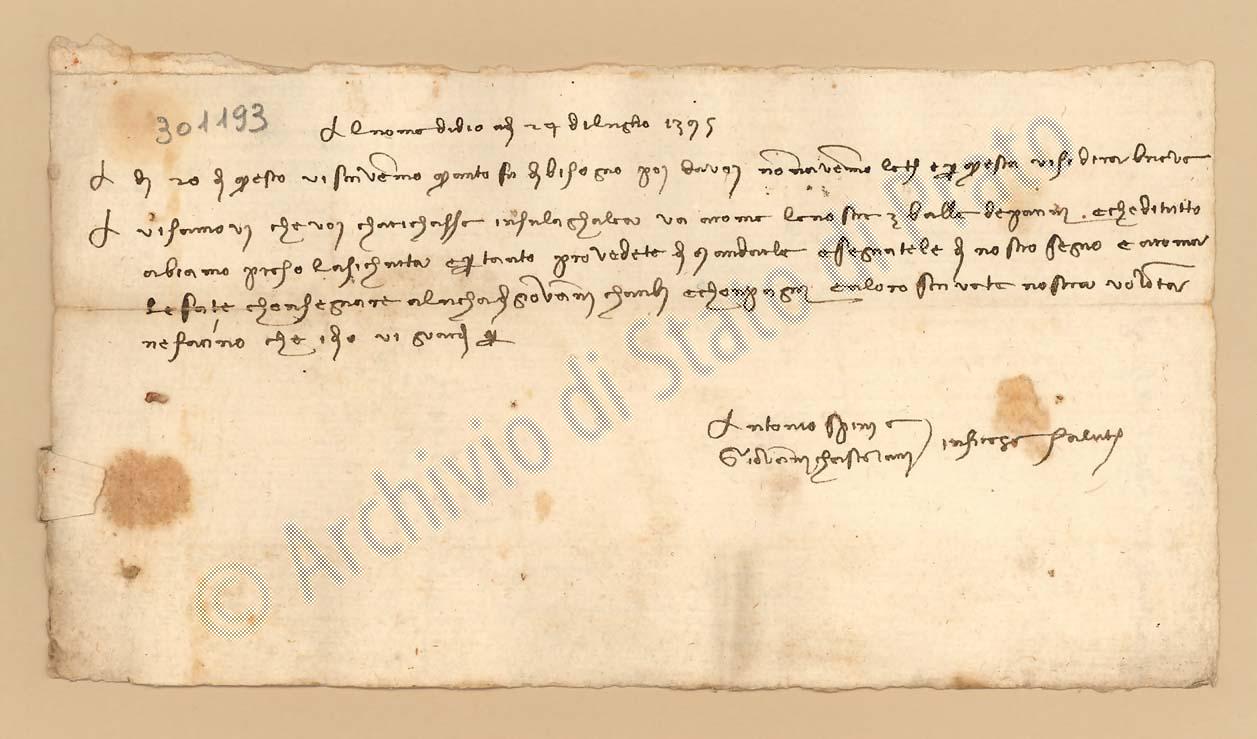 301193
Al nome di dio adi 24 di luglio 1395
A di 20 di questo vi scrivemo quanto fu di bisogno poi da voi non navemo lett e per questa vi si dira brieve
Avisamovi che voi charichasse in su la ghalea va a rome le nostre 3 balle de panni . e che di tutto
abiamo preso la sichurta e per tanto provedete di mandarle e segnatele di nostro segno e a roma
le fate chonsegnare a lucha di giovanni e chonpagni e a loro scrivete nostra volonta
ne facino che idio vi guardi per
Antonio Spini e
Giovanni salut
© Archivio di Stato di Prato